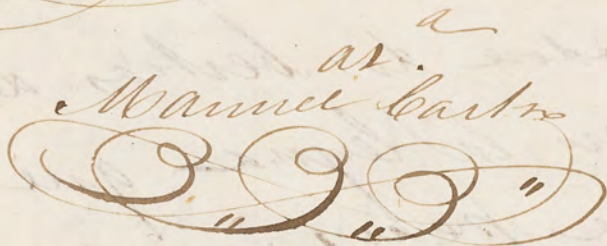 a
as.
Manuel Castro